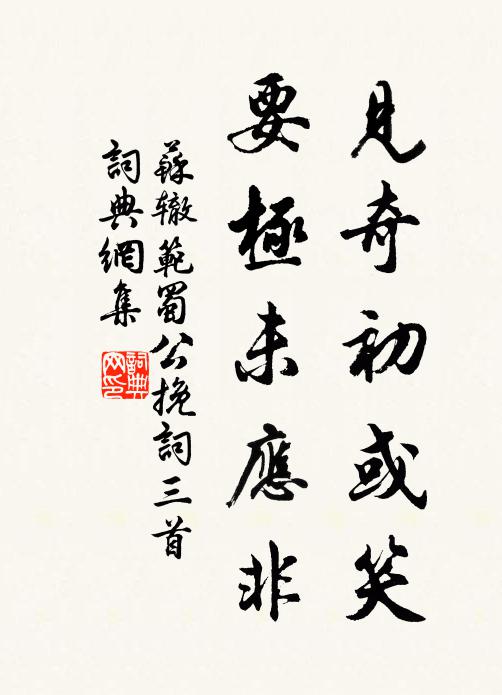 見奇初或笑
要極未應非
蘇轍範蜀公挽詞三首
詞典網集
詞典網印